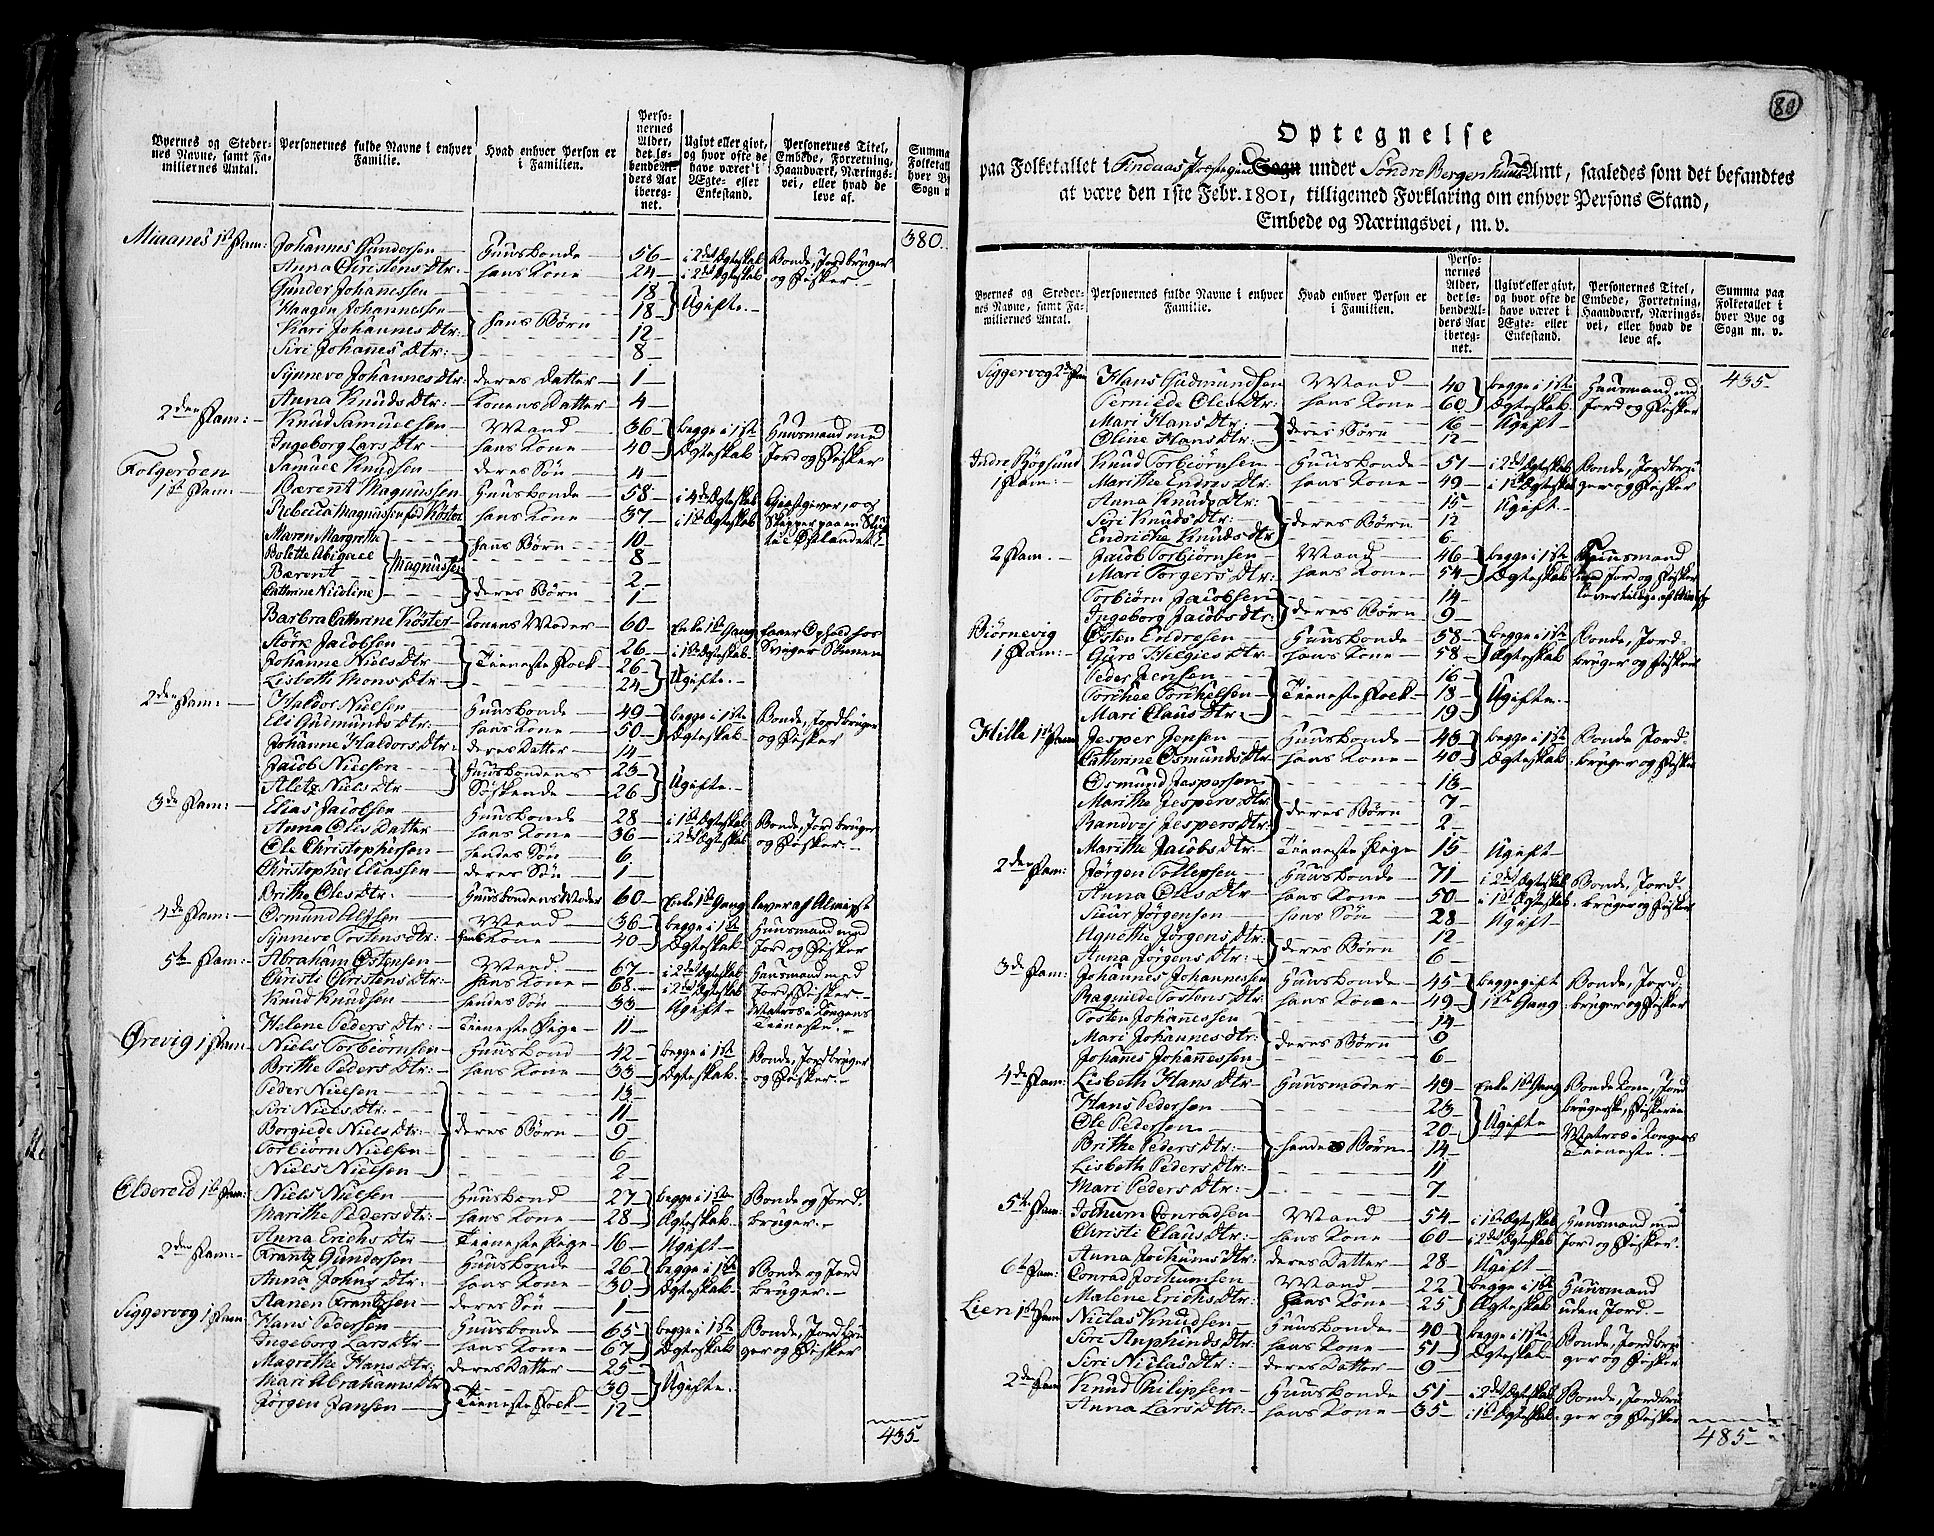 Byernes og Steder-
nes Navne, samt Fa-
miliernes Antal.
Personernes fulde Navne i enhver
Familie.
Hvad enhver Person er
i Familien.
Perso-
nernes
Alder,
det lø-
bende Al-
ders Aar
iberegnet.
Ugivt eller givt,
og hvor ofte de
have været i
Ægte- eller
Enkestand.
Personernes Titel,
Embede, Forretning,
Haandværk, Nærings-
vei, eller hvad de
leve af.
Summa
Folketal
hver By
Sogn m
380.
Johannes Gundersen Huusbonde 56 i 2det Ægteskab Bonde, Jordbruger
Anna Christens Dtr: hans Kone 24 i 2det Ægteskab og Fisker
Gunder Johanessen 18
Haagen Johannessen 18 Ugifte
Kari Johannes Dtr: hans Børn 12
Siri Johanes Dtr: 8
Synnevo Johannes Dtr: deres Datter 1
Anna Knuds Dtr: Konens Datter 4
2den Fam: Knud Samuelsen Mand 36 begge i 1ste Huusmand med
Ingeborg Lars Dtr hans Kone 40 Ægteskab Jord og Fisker
Samuel Knudsen deres Søn 4
Folgerøen
1st Fam: Bærent Magnussen Huusbonde 58 i 4de Ægteskab Giæstgiver, og
Rebecca Magnussen fød Köster hans Kone 37 i 1st Ægteskab
Maren Margrethe 10
Bolette Abigael Magnussen hans Børn 8
Bærent 2
Cathrine Nicoline deres Børn 1
Barbra Cathrine Köster Konens Moder 60 Enke 1ste Gang faaer Ophold hos
Størk Jacobsen 26 i 1st Ægteskab Sviger Sønnen
Johanne Niels Dtr Tieneste Folk 26
Lisbeth Mons Dtr 24 Ugifte
2den Fam: Haldor Nielsen Huusbonde 49 begge i 1ste Bonde, Jordbruger
Eli Gudmunds Dtr: hans Kone 50 Ægteskab og Fisker
Johanne Haldors Dtr: deres Datter 14
Jacob Nielsen Huusbondens 23
Aletz Niels Dtr Søskende 26 Ugifte
3de Fam: Elias Jacobsen Huusbonde 28 i 1st Ægteskab Bonde, Jordbruger
Anna Oles Datter hans Kone 36 i 2det Ægteskab og Fisker
Ole Christophersen hendes Søn 6
Christopher Eliassen deres Søn 1
Brithe Oles Dtr: Huusbondens Moder 60 Enke 1ste Gang lever af Almisse
4de Fam: Osmund Mand 36 begge i 1ste Huusmand med
Synneve Tostens dtr: hans Kone 40 Ægteskab Jord og Fisker
5te Fam: Abraham Ostensen Mand 67 i 2det Ægteskab Huusmand med
Christi Christens Dtr: hans Kone 68 i 2det Ægteskab Jord Fisker
Knud Knudsen hendes Søn 33 Ugift Matros i Kongens
Helene Peders Dtr: Tieneste Pige 11 Tieneste
Ørevig 1 Fam Niels Torbiørnsen Huusbond 42 begge i 1ste Bonde, Jordbruger
Brithe Peders Dtr: hans Kone 33 Ægteskab og Fisker
Peder Nielsen 13
Siri Niels Dtr: 11
Borgiede Niels Dtr: deres Børn 9
Torbiørn Nielsen 6
Niels Nielsen 2
Eldereid 1st Fam: Niels Nielsen Huusbond 27 begge i 1ste Bonde og Jord
Marithe Peders Dtr: hans Kone 28 Ægteskab bruger
Anna Erichs Dtr Tieneste Pige 16 Ugift
2den Fam: Frantz Gundersen Huusbonde 26 begge i 1ste Bonde og Jord
Anna Johns Dtr: hans Kone 30 Ægteskab bruger
Hanen Frantzsen deres Søn 1
Siggervog 1 Fam Hans Pedersen Huusbonde 65 begge i 1ste Bonde, Jordbru
Ingeborg Lars Dtr hans Kone 67 Ægteskab ger og Fisker
Magrethe Hans Dtr: deres Datter 25
Mari Abrahams Dtr 39 Ugifte
Jørgen Jansen Tieneste Folk 12
435
80
Optegnelse
paa Folketallet i Findaas Præstegield Sogn under Søndre Bergenhuus Amt, saaledes som det befandtes
at være den 1ste Febr. 1801, tilligemed Forklaring om enhver Persons Stand,
Embede og Næringsvei, m. v.
Byernes og Steder-
nes Navne, samt Fa-
miliernes Antal.
Personernes fulde Navne i enhver
Familie.
Hvad enhver Person er
i Familien.
Perso-
nernes
Alder,
det lø-
bende Al-
ders Aar
iberegnet.
Ugivt eller givt,
og hvor ofte de
have været i
Ægte- eller
Enkestand.
Personernes Titel,
Embede, Forretning,
Haandværk, Nærings-
vei, eller hvad de
leve af.
Summa paa
Folketallet i
hver Bye og
Sogn m. v.
Siggervog 2de Fam Hans Gudmundsen Mand 40 begge i 1ste Huusmand med 435
Perniede Oles Dtr: hans Kone 60 Ægteskab Jord og Fisker
Mari Hans Dtr: 16 Ugift
Oline Hans Dtr: deres Børn 12
Indre Røgsund Knud Torbiørnsen Huusbonde 51 i 2det Ægteskab Bonde, Jordbru
1 Fam: Marithe Endres Dtr: hans Kone 49 i 1st Ægteskab ger og Fisker
Anna Knuds Dtr: 15 Ugift
Siri Knuds Dtr: deres Børn 12
Endriche Knuds Dtr 6
2 Fam. Jacob Torbiørnsen Mand 46 begge i 1ste Huusmand
Mari Torgers Dtr: hans Kone 54 Ægteskab
Torbiørn Jacobsen 14
Ingeborg Jacobs dtr: deres Børn 9
Biørnevig Østen Endresen Huusbonde 58 begge i 1ste Bonde, Jord
1 Fam: Guro Helgies Dtr hans Kone 58 Ægteskab bruger og Fisker
Peder Jensen 16
Torchel Torchelsen Tieneste Folk 18 Ugifte
Mari Claus Dtr: 19
Hille 1st Fam Jesper Jensen Huusbonde 43 begge i 1ste Bonde Jord
Cathrine Osmunds Dtr hans Kone 40 Ægteskab bruger og Fisker
Osmund Jespersen 13
Marithe Jespers Dtr: deres Børn 7
Randvej Jespers Dtr: 2
Marithe Jacobs Dtr: Tieneste Pige 15 Ugift
2den Fam: Jørgen Tollepsen Huusbonde 71 i 2det Ægteskab Bonde, Jord
Anna Oles Dtr hans Kone 50 i 1st Ægteskab bruger og Fisker
Siur Jørgensen hans Søn 28 Ugift
Agnethe Jørgens Dtr: 12
Anna Jørgens Dtr: deres Børn 6
3de Fam: Johannes Johannesen Huusbonde 45 begge gift Bonde, Jord
Ragnilde Tostens Dtr: hans Kone 49 1ste Gang bruger og Fisker
Tosten Johannessen 14
Mari Johannes Dtr: deres Børn 9
Johanes Johanessen 6
4de Fam: Lisbeth Hans Dtr Huusmoder 49 Enke 1ste Gang Bonde Kone, Jord
Hans Pedersen 23
Ole Pedersen 20 Ugifte Matros i Kongens
Brithe Peders Dtr: hendes Børn 14 Tieneste
Lisbeth Peders Dtr: 11
Mari Peders Dtr: 7
5te Fam: Jochum Conradsen Mand 54 i 1st Ægteskab Huusmand med
Christi Claus Dtr: hans Kone 60 i 2det Ægteskab Jord og Fisker
Anna Jochums Dtr: deres Datter 28 Ugift
6te Fam: Conrad Jochumsen Mand 22 begge i 1ste Huusmand
Malene Erichs Dtr: hans Kone 25 Ægteskab uden Jord
Lien 1st Fam Niclas Knudsen Huusbonde 40 begge i 1ste Bonde, Jordbru
Siri Amphinds Dtr: hans Kone 51 Ægteskab ger og Fisker
Siri Niclas Dtr: deres Datter 9
2de Fam Knud Philipsen Huusbonde 51 i 2det Ægteskab Bonde, Jordbru
Anna Lars Dtr: hans Kone 35 i 1st Ægteskab ger og Fisker
485